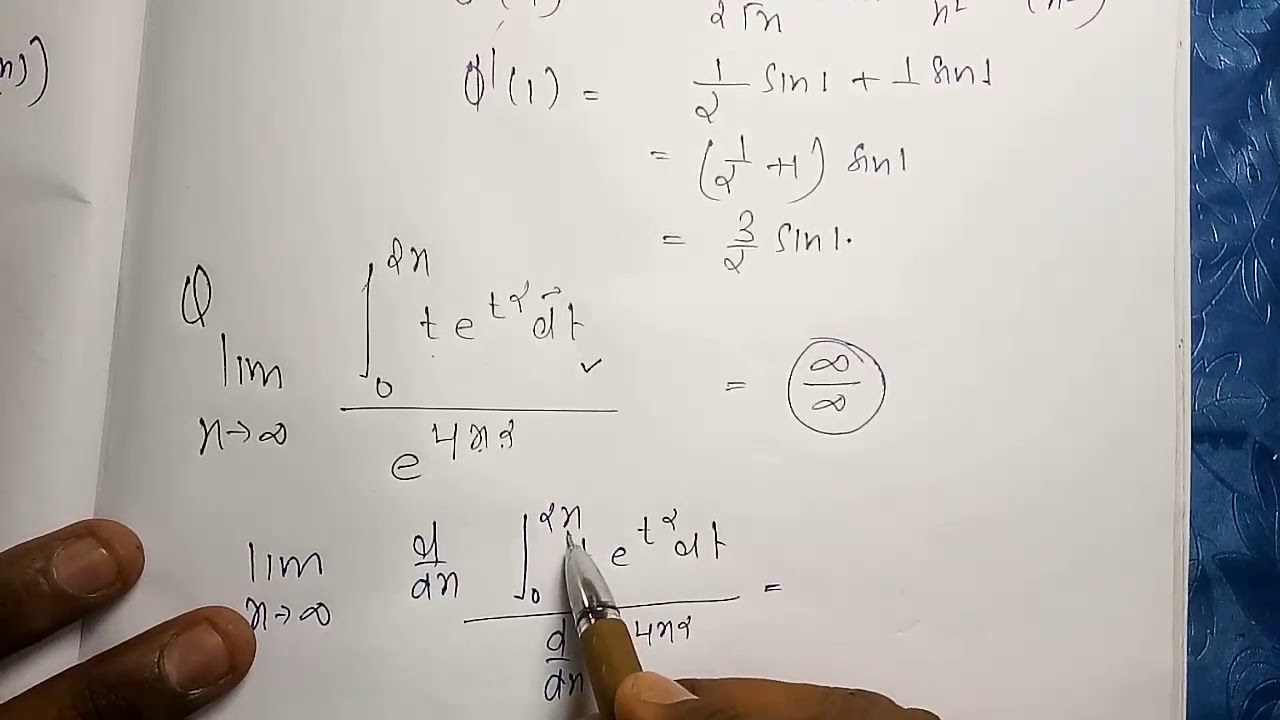 n))
2√x x² (x²)
φ'(1) = 1/2 sin 1 + 1 sin 1
= (1/2 + 1) sin 1
= 3/2 sin 1.
Q lim x→∞ ∫₀^2x t e^t² dt / e^4x² = ∞/∞
lim x→∞ d/dx ∫₀^2x e^t² dt / d/dx 4x² =